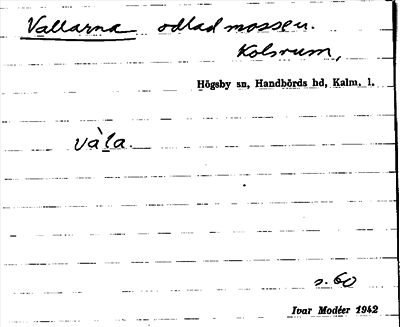 Vallarna odlad mossen.
Kolsrum,
Högsby sn, Handbörds hd, Kalm. l.
vàla.
s. 60
Ivar Modéer 1942